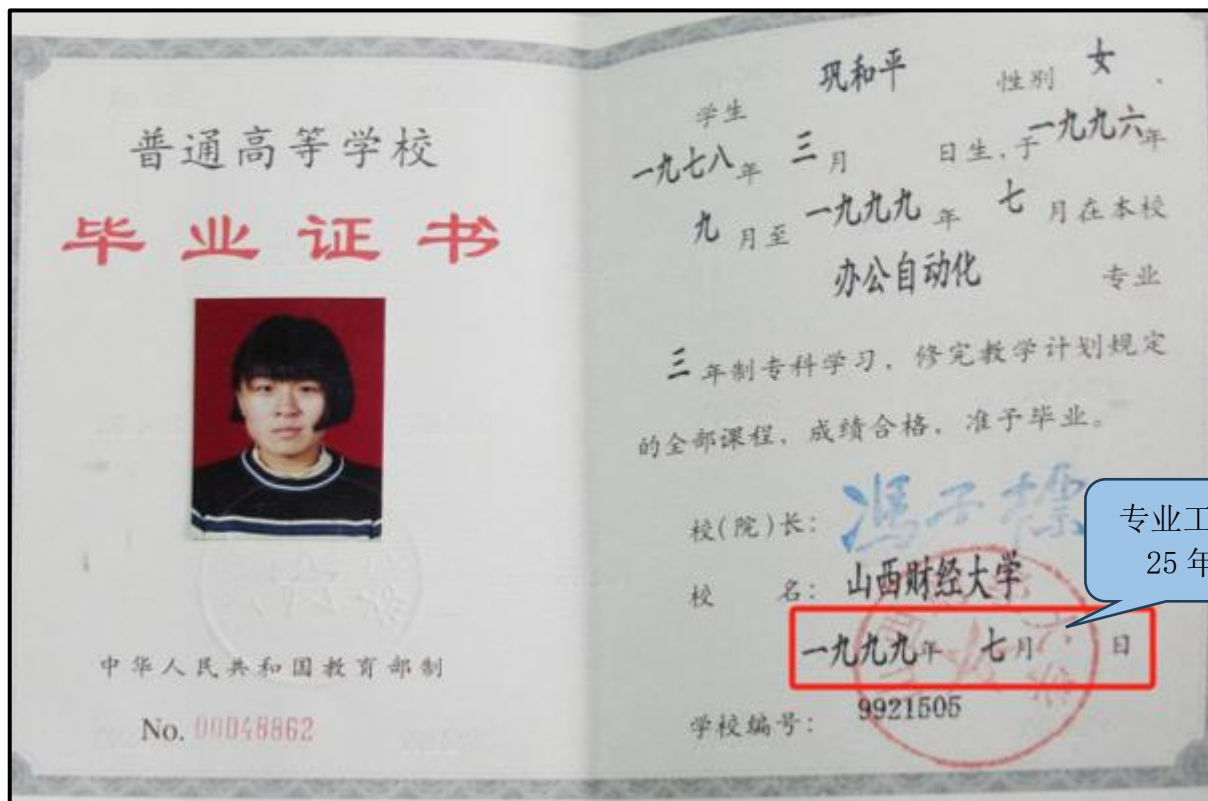 普通高等学校
毕业证书
中华人民共和国教育部制
No. 00048862
学生 巩和平 性别 女.
一九七八年 三月 日生,于一九九六年
九月至一九九九年 七月在本校
办公自动化 专业
三年制专科学习,修完教学计划规定
的全部课程,成绩合格,准予毕业。
校(院)长: 冯子标
校 名: 山西财经大学
一九九九年 七月 日
学校编号: 9921505
专业工
25 年